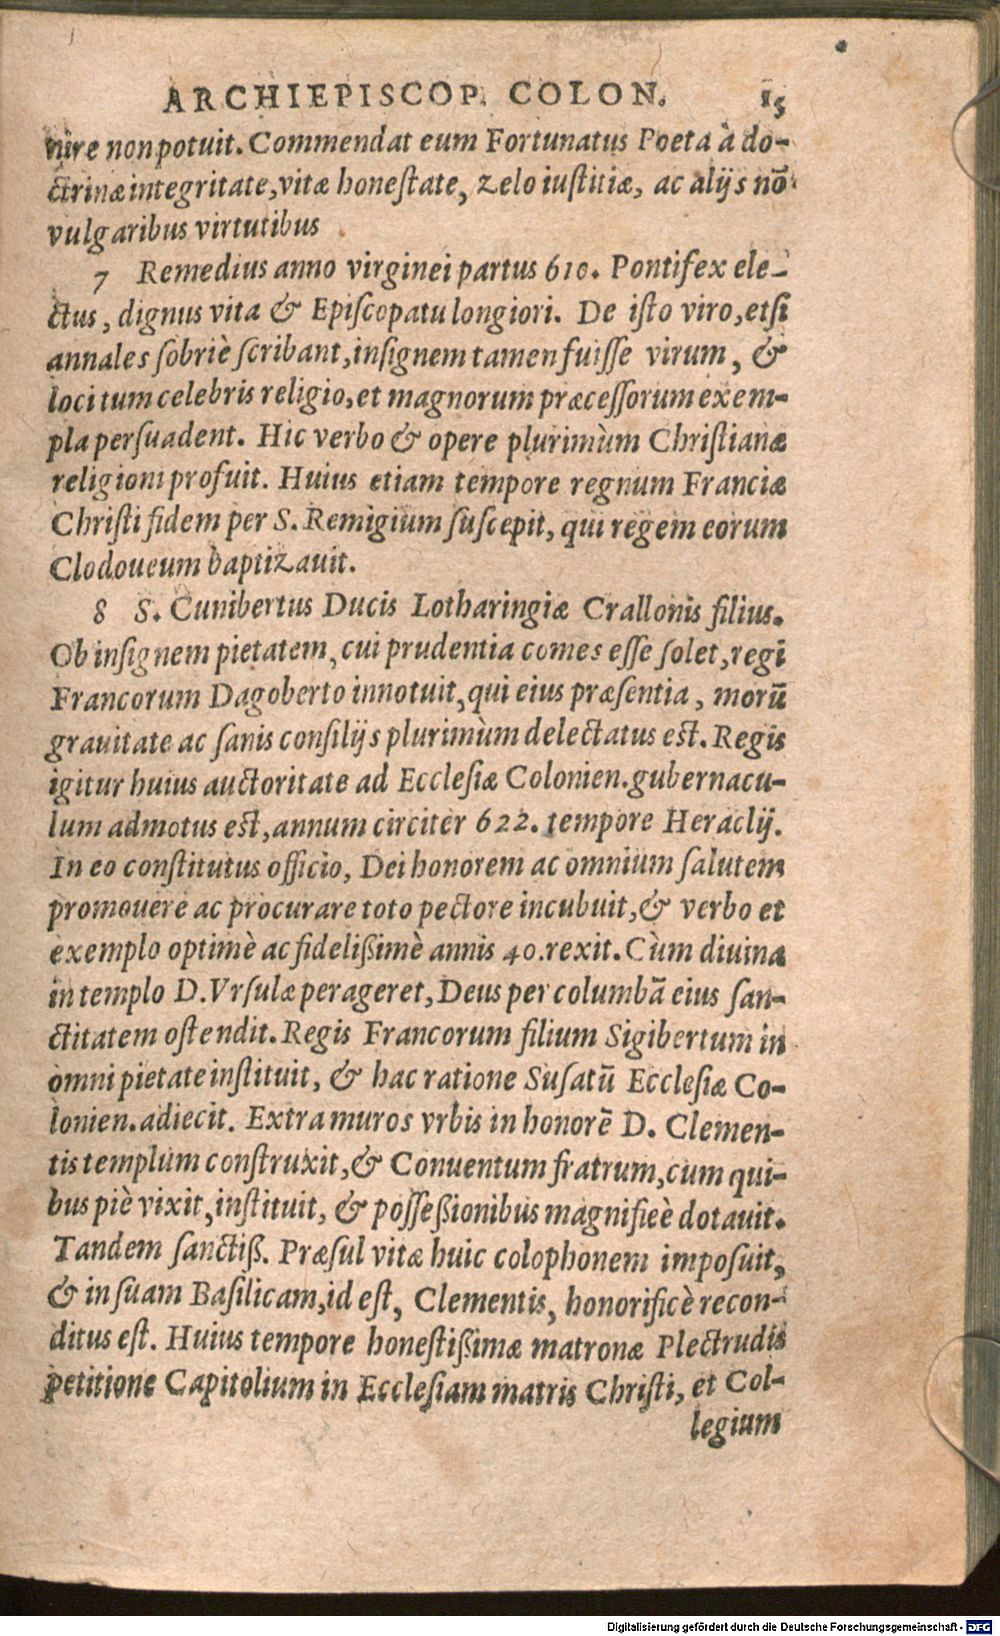 ARCHIEPISCOP. COLON. 15
nire non potuit. Commendat eum Fortunatus Poeta à do-
ctrinæ integritate, vitæ honeſtate, zelo iuſtitiæ, ac alijs nō
vulgaribus virtutibus.
7 Remedius anno virginei partus 610. Pontifex ele-
ctus, dignus vita & Epiſcopatu longiori. De iſto viro, etſi
annales ſobriè ſcribant, inſignem tamen fuiſſe virum, &
loci tum celebris religio, et magnorum præceſſorum exem-
pla perſuadent. Hic verbo & opere plurimùm Chriſtianæ
religioni profuit. Huius etiam tempore regnum Franciæ
Chriſti fidem per S. Remigium ſuſcepit, qui regem eorum
Clodoueum baptizauit.
8 S. Cunibertus Ducis Lotharingiæ Crallonis filius.
Ob inſignem pietatem, cui prudentia comes eſſe ſolet, regi
Francorum Dagoberto innotuit, qui eius præſentia, morū
grauitate ac ſanis conſilijs plurimùm delectatus eſt. Regis
igitur huius auctoritate ad Eccleſiæ Colonien. gubernacu-
lum admotus eſt, annum circiter 622. tempore Heraclij.
In eo conſtitutus officio, Dei honorem ac omnium ſalutem
promouere ac procurare toto pectore incubuit, & verbo et
exemplo optimè ac fideliſsimè annis 40. rexit. Cùm diuina
in templo D. Vrſulæ perageret, Deus per columbā eius ſan-
ctitatem oſtendit. Regis Francorum filium Sigibertum in
omni pietate inſtituit, & hac ratione Suſatū Eccleſiæ Co-
lonien. adiecit. Extra muros vrbis in honorē D. Clemen-
tis templum conſtruxit, & Conuentum fratrum, cum qui-
bus piè vixit, inſtituit, & poſſeſsionibus magnificè dotauit.
Tandem ſanctiſs. Præſul vitæ huic colophonem impoſuit,
& in ſuam Baſilicam, id eſt, Clementis, honorificè recon-
ditus eſt. Huius tempore honeſtiſsimæ matronæ Plectrudis
petitione Capitolium in Eccleſiam matris Chriſti, et Col-
legium
Digitalisierung gefördert durch die Deutsche Forschungsgemeinschaft - DFG